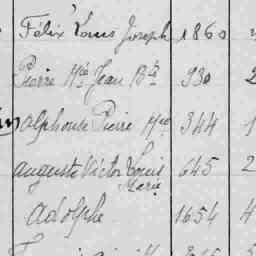 Félix Louis Joseph 1860
Pierre Mie Jean Bte 930 2
Alphonse Pierre Mie 344 1
Auguste Victor Louis 645 2
Marie
Adolphe 1654 4